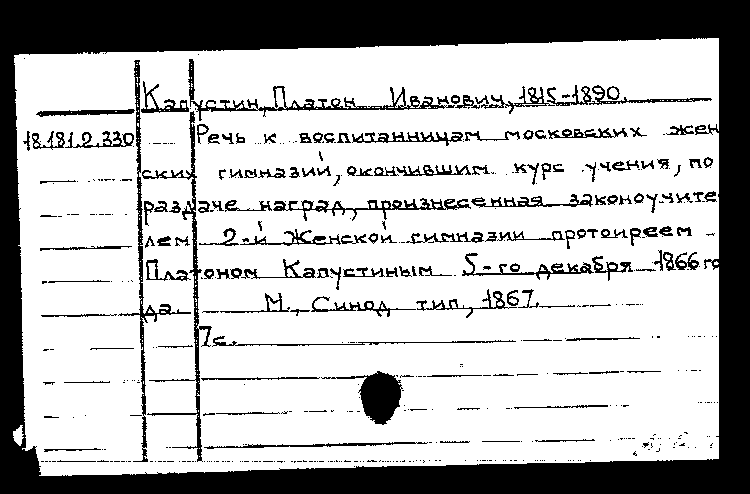 Капустин, Платон Иванович, 1815-1890.
18.181.2.330 Речь к воспитанницам московских жен
ских гимназий, окончившим курс учения, по
раздаче наград, произнесенная законоучите
лем 2-й Женской гимназии протоиреем -
Платоном Капустиным 5-го декабря 1866 го
да. М., Синод. тип., 1867.
7с.